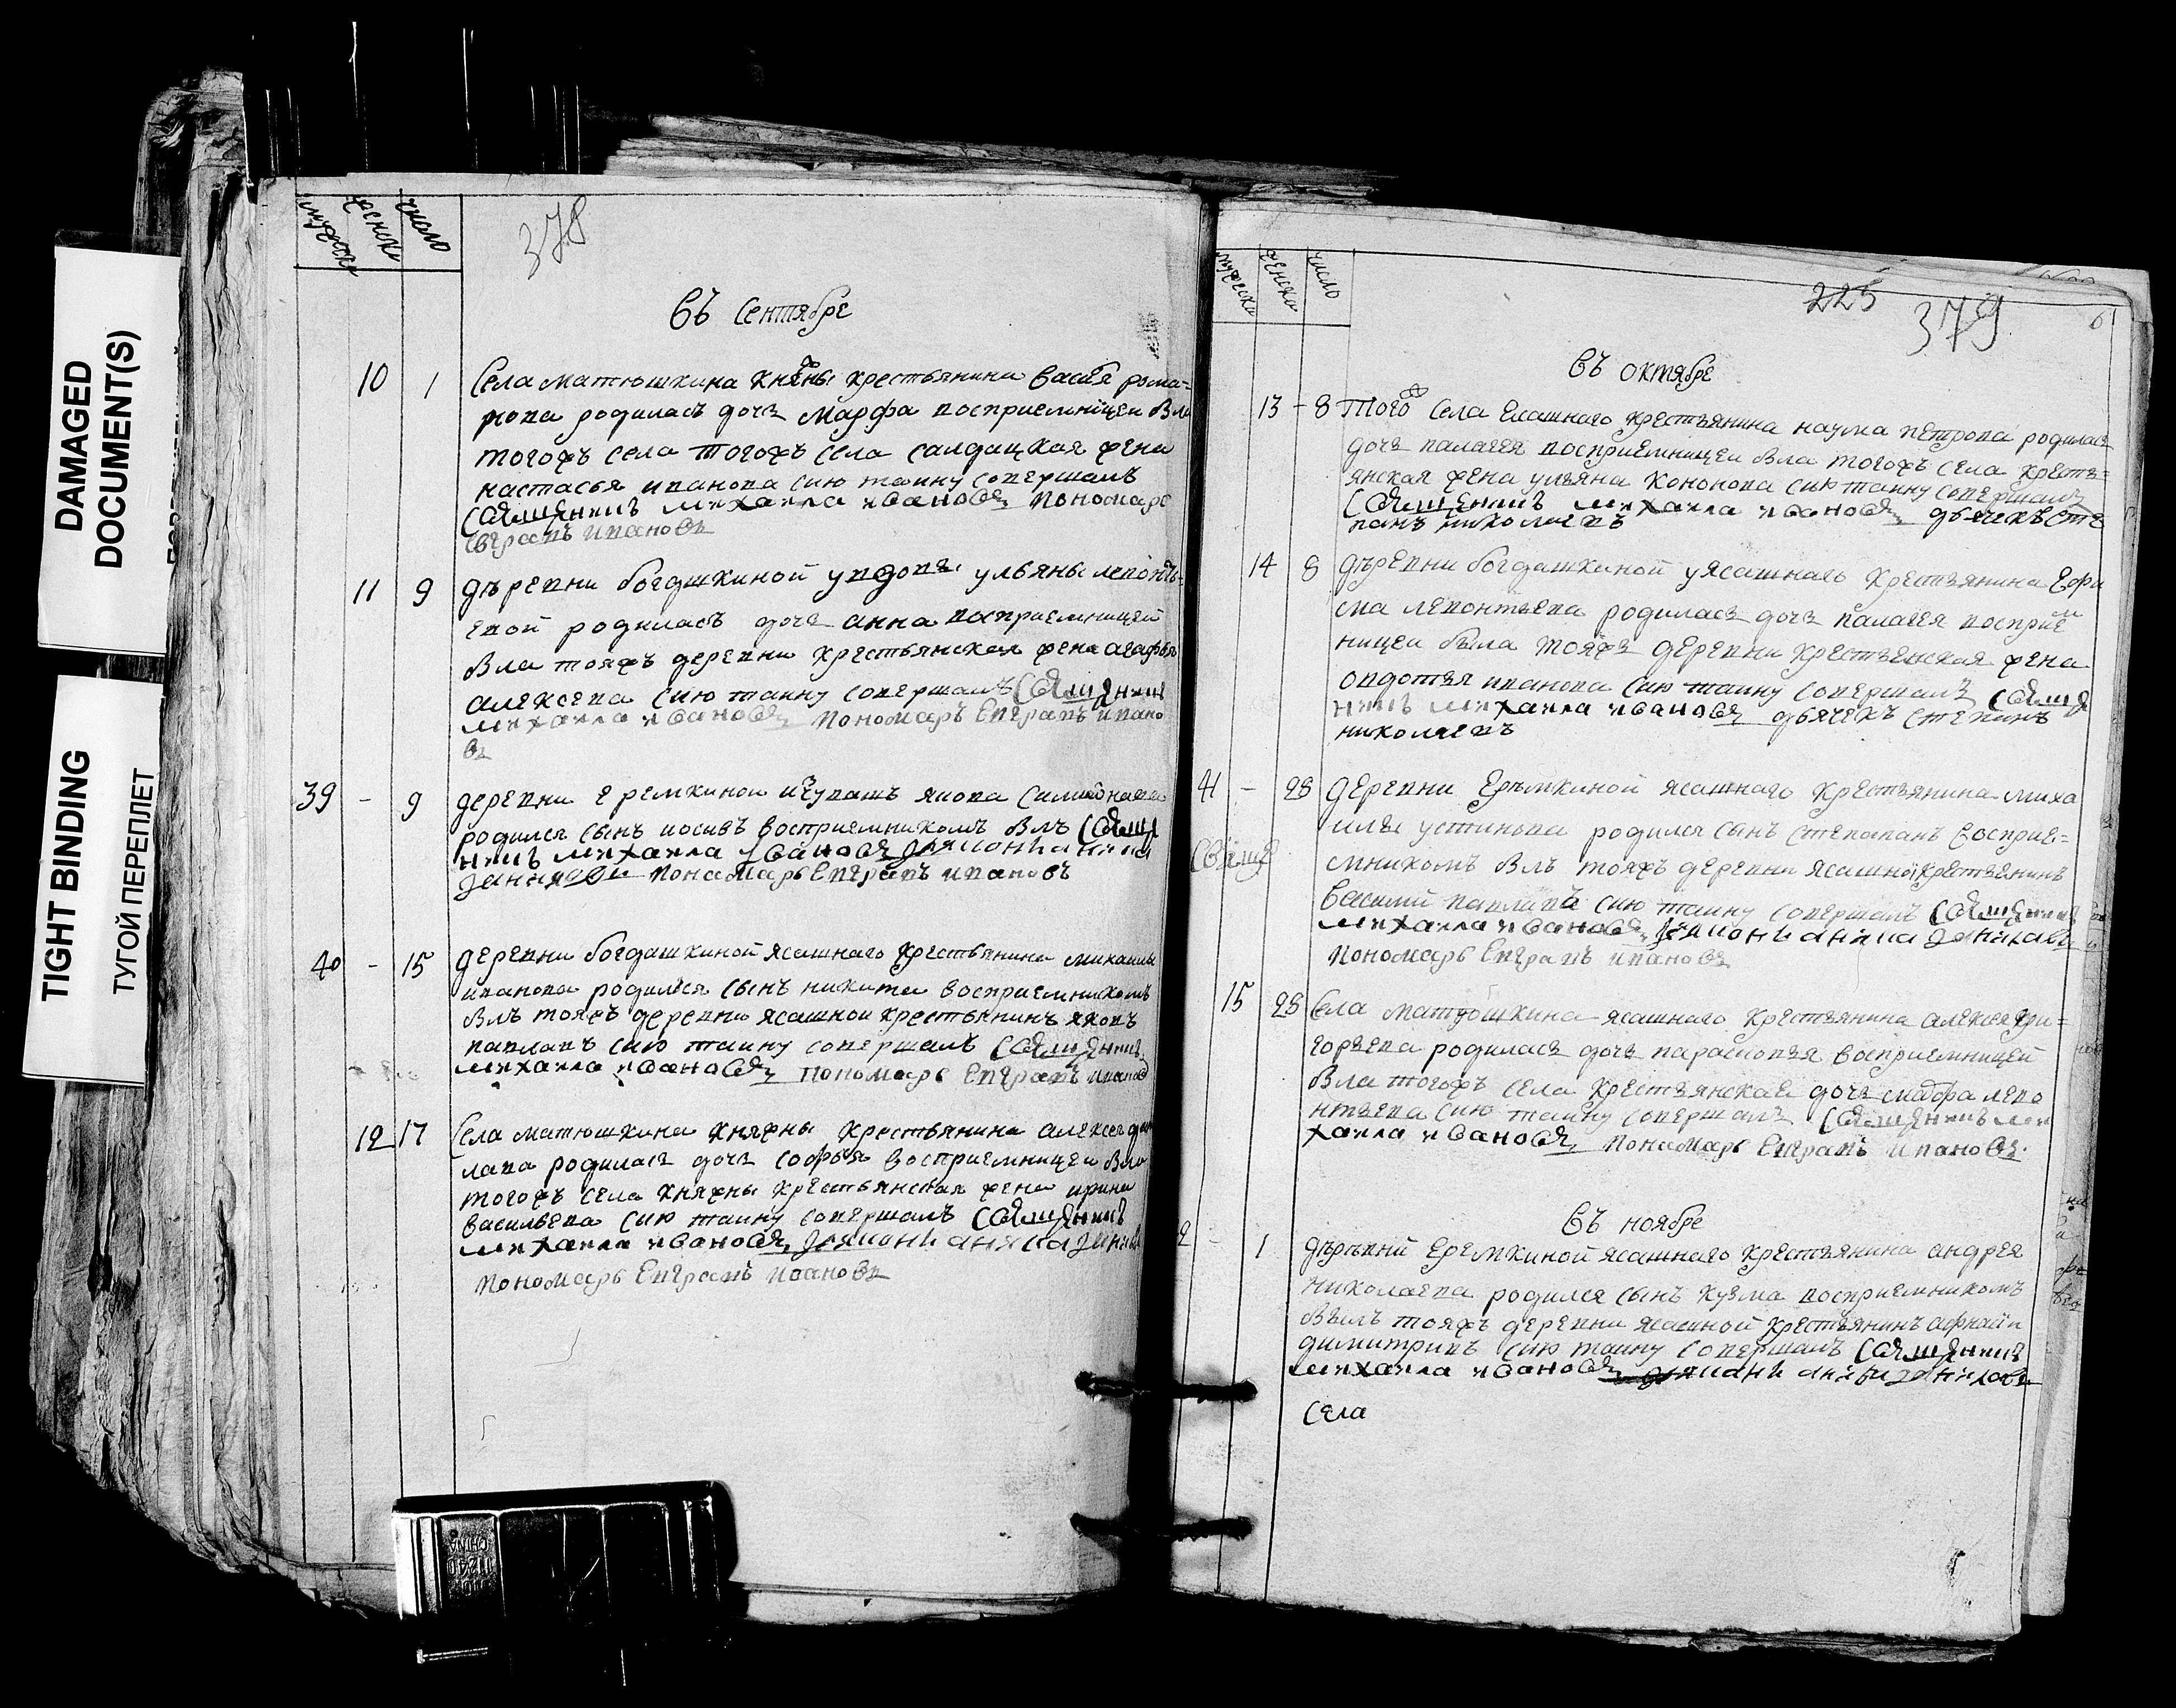 DAMAGED
DOCUMENT(S)
TIGHT BINDING
ТУГОЙ ПЕРЕПЛЕТ
мужеска женска число
378
Въ Сентябре
10 1 Села матюшкина княжны крестьянина васи́лья рома=
нова родилась дочь марфа восприемницеи была
тогожъ села тогожъ села салдацкая жена
настасья иванова сию таину совершалъ
священникъ михаила ивановъ пономарь
евграпъ ивановъ
11 9 дѣревни богдашкиной у вдовы ульяны левонть=
евой родилась дочь анна восприемницей
была тояжъ деревни крестьянская жена агафья
алексева сию таину совершалъ священникъ
михаила ивановъ пономаръ Евграпъ ивано
въ
39 - 9 деревни еремкинои
родился сынъ иосивъ восприемникомъ былъ священ
никъ михаила ивановъ
пономарь Евграпъ ивановъ
40 - 15 деревни богдашкиной ясашнаго крестьянина михаилы
иванова родился сынъ никита восприемникомъ
былъ тояжъ деревни ясашнои крестьянинъ яковъ
павлавъ сию таину совершалъ священникъ
михаила ивановъ пономарь Евграпъ ивановъ
12 17 Села матюшкина княжны крестьянина алексея дани
лава родилась дочь софья восприемницеи была
тогожъ села княжны крестьянская жена ирина
васильева сию таину совершалъ священникъ
михаила ивановъ
пономарь Евграпъ ивановъ
мужеска женска число
225 379
Въ октябре
13 - 8 Тогожъ села ясашнаго крестьянина наума петрова родилась
дочь палагея восприемницеи была тогожъ села кресть=
янская жена ульяна кононова сию таину совершалъ
священникъ михаила ивановъ дьячекъ сте
панъ николаевъ
14 8 дѣревни богдашкиной у ясашнаго крестьянина Ефи
ма левонтьева родилась дочь палагея восприем
ницеи была тояжъ деревни крестьянская жена
овдотья иванова сию таину совершалъ свяще
никъ михаила ивановъ дьячекъ степанъ
николаевъ
41 - 28 деревни Ерѣмкиной ясашнаго крестьянина миха
илы устинова родился сынъ степапанъ восприе=
мникомъ былъ тояжъ деревни ясашной крестьянинъ
василий павлавъ сию таину совершалъ священникъ
михаила ивановъ
пономарь Евграпъ ивановъ
15 28 Села матюшкина ясашнаго крестьянина алексея гри=
горьева родилась дочь парасковья восприемницей
была тогожъ села крестьянская дочь лево
нтьева сию таину совершалъ священникъ ми
хаила ивановъ пономарь Евграпъ ивановъ.
Въ ноябре
2 - 1 дѣревнй Еремкиной ясашнаго крестьянина андрея
николаева родился сынъ кузма восприемникомъ
былъ тояжъ деревни ясашной крестьянинъ
димитривъ сию таину совершалъ священникъ
михаила ивановъ
села